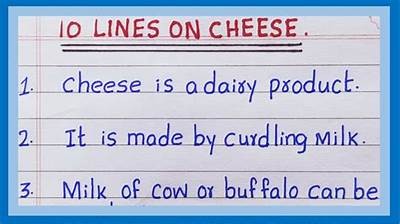 10 LINES ON CHEESE.
1. Cheese is a dairy product.
2. It is made by curdling Milk.
3. Milk of cow or buffalo can be